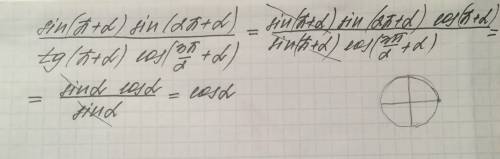 sin(π+α) sin(2π+α) / tg(π+α) cos(3π/2+α) = sin(π+α) sin(2π+α) cos(π+α) / sin(π+α) cos(3π/2+α) =
= sinα cosα / sinα = cosα